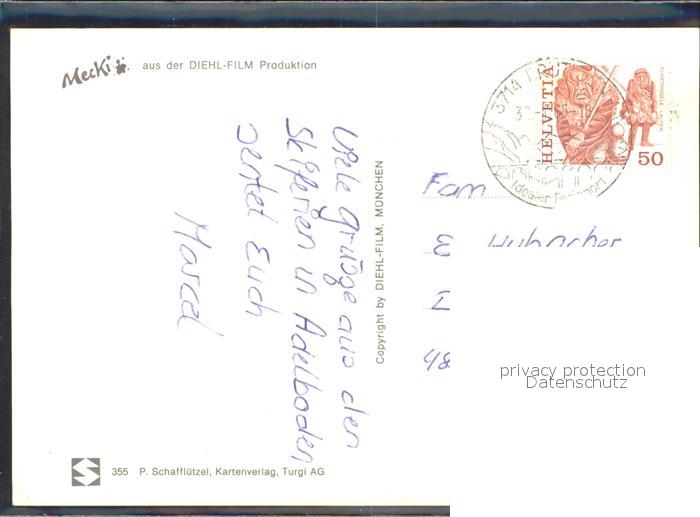 Mecki
aus der DIEHL-FILM Produktion
Viele grüße aus den
Skiferien in Adelboden
sertet Euch
Marcel
Copyright by DIEHL-FILM, MÜNCHEN
3714 FRUTIGEN
Idealer Ferienort
HELVETIA
ACHETRINGELE LAUPEN
50
Fam
E
I
48
privacy protection
Datenschutz
355 P. Schafflützel, Kartenverlag, Turgi AG